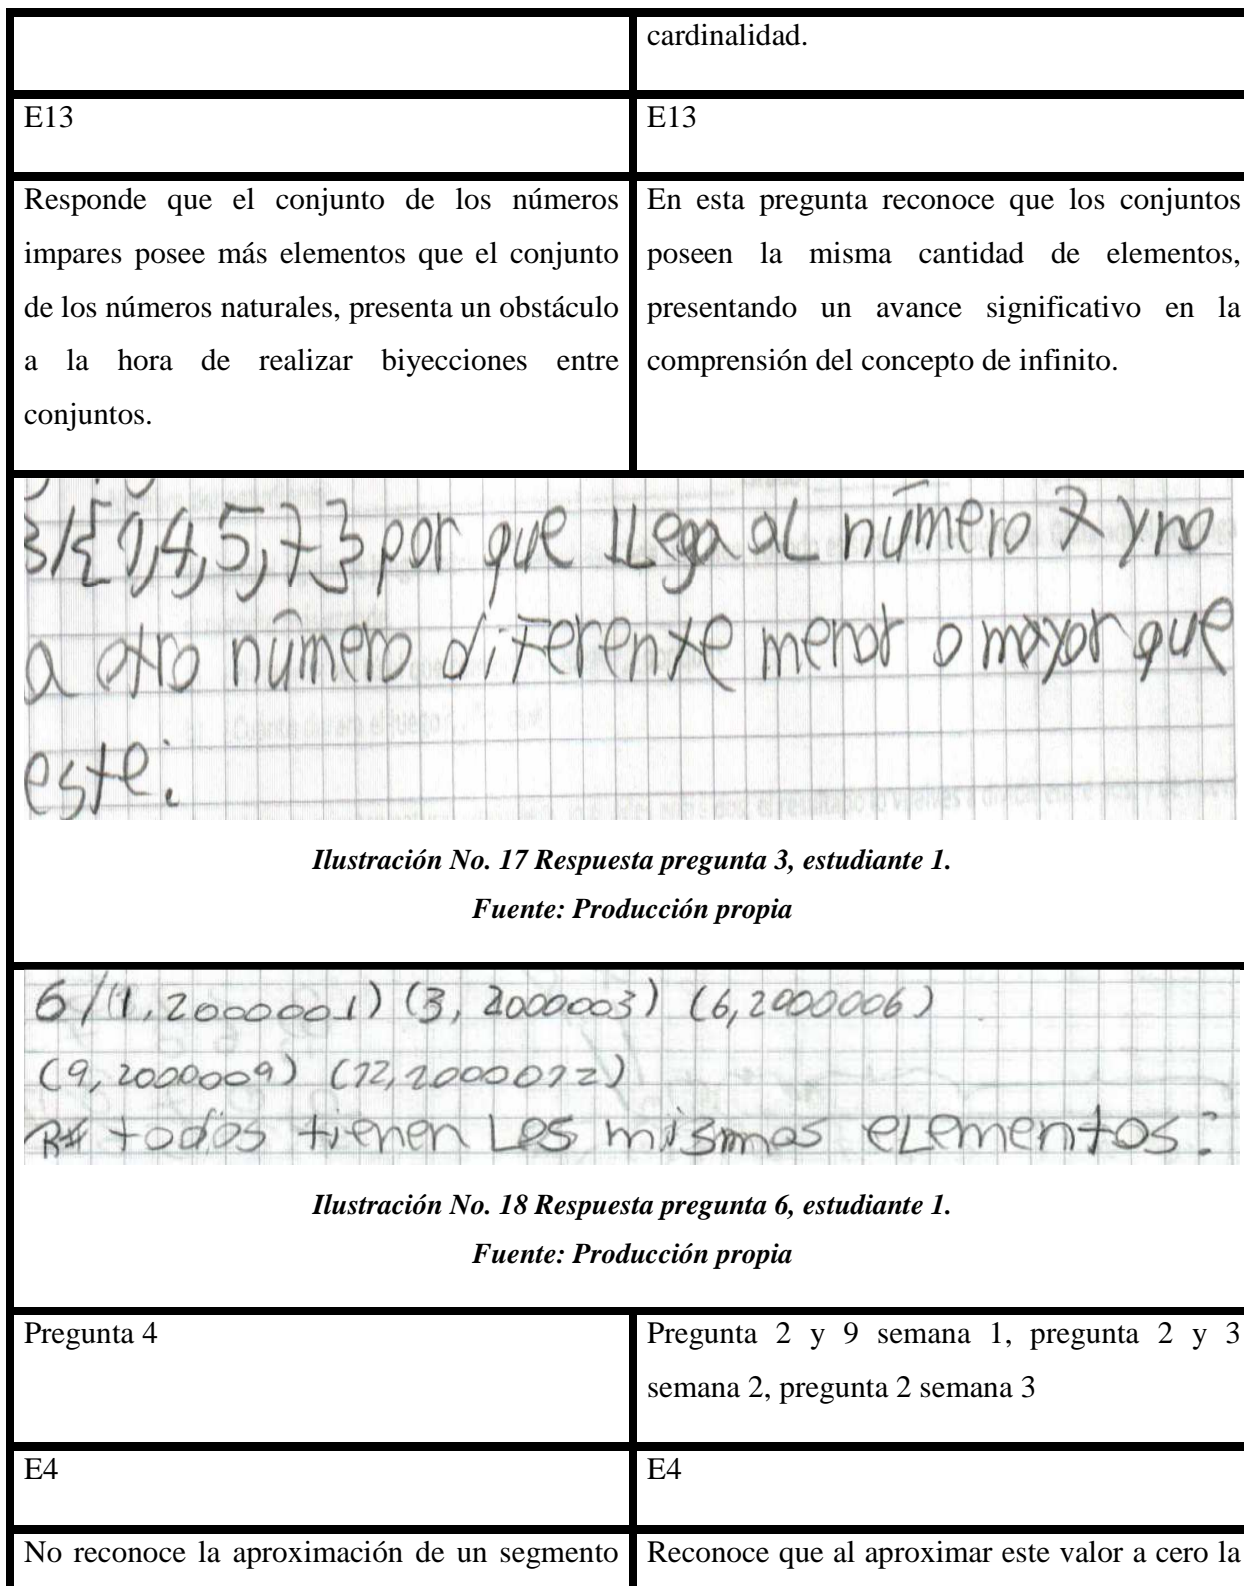 cardinalidad.
E13
E13
Responde que el conjunto de los números
impares posee más elementos que el conjunto
de los números naturales, presenta un obstáculo
a la hora de realizar biyecciones entre
conjuntos.
En esta pregunta reconoce que los conjuntos
poseen la misma cantidad de elementos,
presentando un avance significativo en la
comprensión del concepto de infinito.
3/{1,4,5,7} por que llega al número 7 y no
a otro número diferente menor o mayor que
este.
Ilustración No. 17 Respuesta pregunta 3, estudiante 1.
Fuente: Producción propia
6/(1,2000001) (3, 2000003) (6,2000006)
(9,2000009) (12,2000012)
R# todos tienen Los mismos elementos.
Ilustración No. 18 Respuesta pregunta 6, estudiante 1.
Fuente: Producción propia
Pregunta 4
Pregunta 2 y 9 semana 1, pregunta 2 y 3
semana 2, pregunta 2 semana 3
E4
E4
No reconoce la aproximación de un segmento
Reconoce que al aproximar este valor a cero la